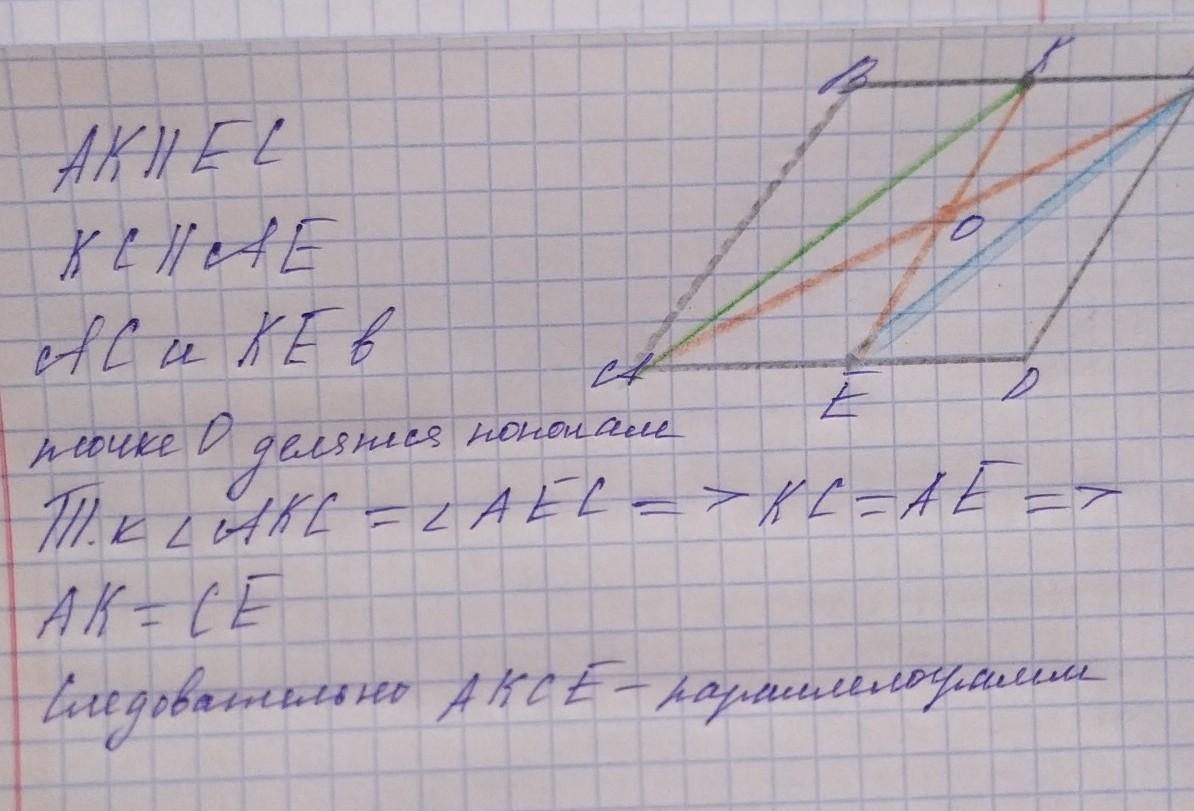 AK || EC
KC || AE
AC и KE в
точке O делятся пополам
Т.к ∠ AKC = ∠ AEC => KC = AE =>
AK = CE
Следовательно AKCE - параллелограмм
B
K
O
A
E
D